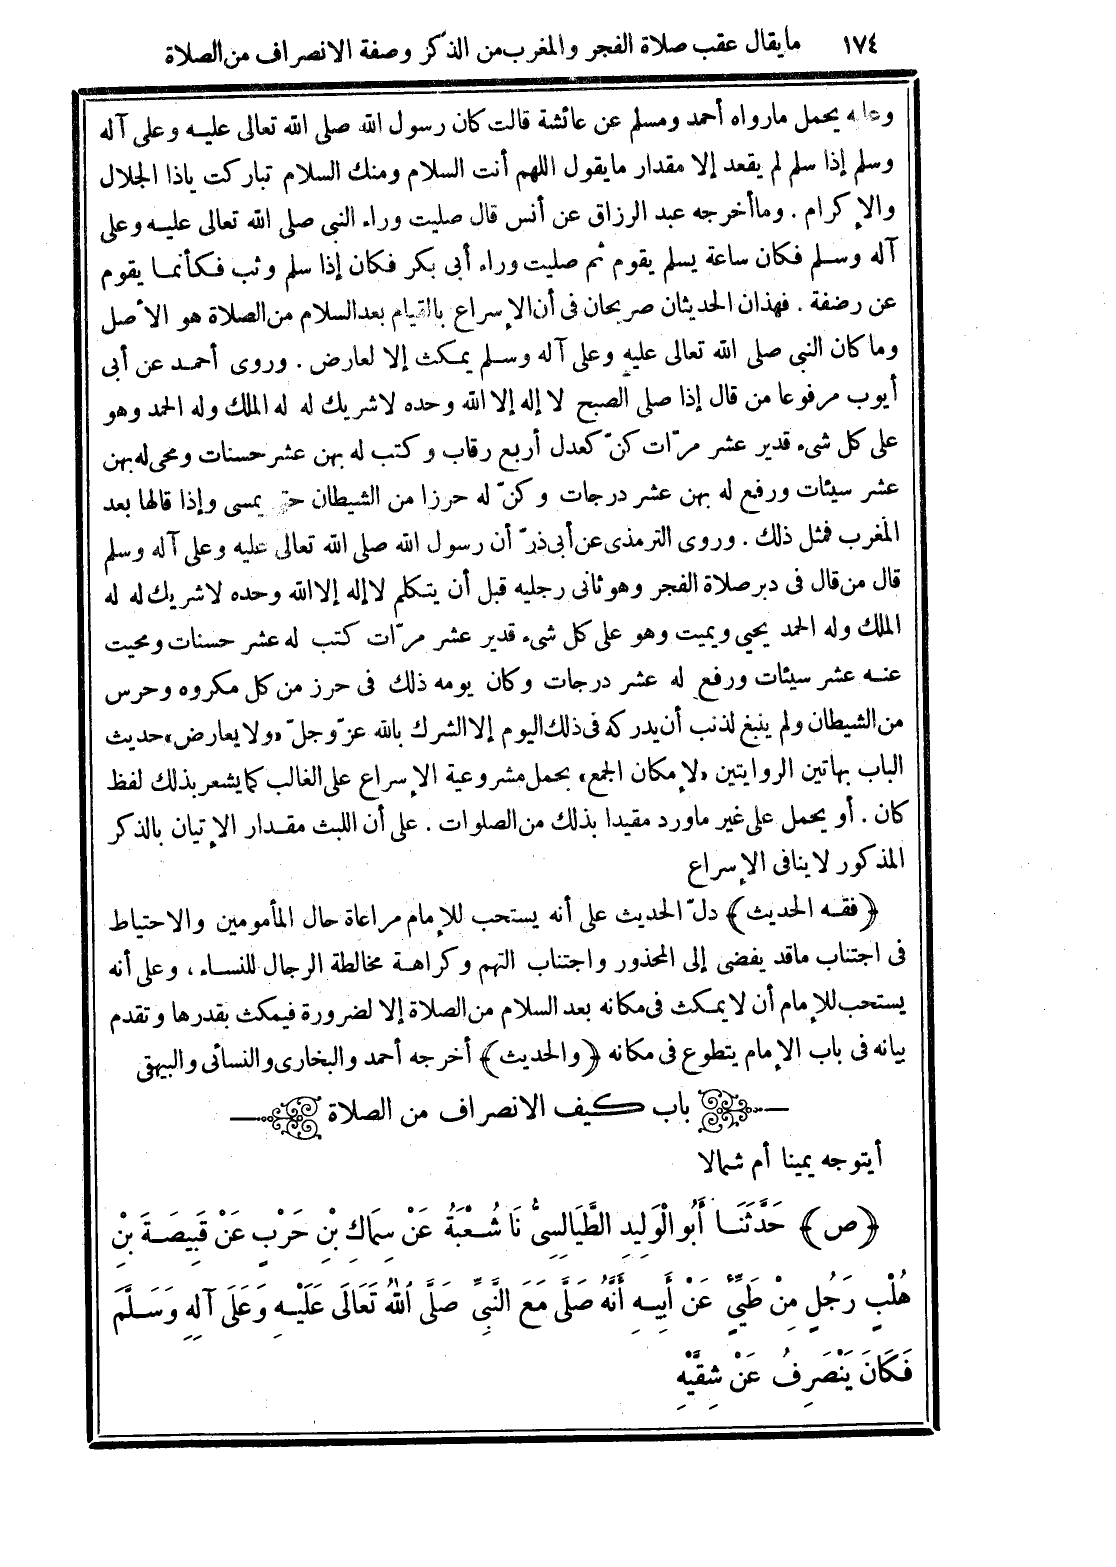 ١٧٤ مايقال عقب صلاة الفجر والمغرب من الذكر وصفة الانصراف من الصلاة
وعليه يحمل مارواه أحمد ومسلم عن عائشة قالت كان رسول الله صلى الله تعالى عليه وعلى آله
وسلم إذا سلم لم يقعد إلا مقدار مايقول اللهم أنت السلام ومنك السلام تباركت ياذا الجلال
والإكرام . وماأخرجه عبد الرزاق عن أنس قال صليت وراء النبى صلى الله تعالى عليه وعلى
آله وسلم فكان ساعة يسلم يقوم ثم صليت وراء أبى بكر فكان إذا سلم وثب فكأنما يقوم
عن رضفة . فهذان الحديثان صريحان فى أن الإسراع بالقيام بعد السلام من الصلاة هو الأصل
وما كان النبى صلى الله تعالى عليه وعلى آله وسلم يمكث إلا لعارض . وروى أحمد عن أبى
أيوب مرفوعا من قال إذا صلى الصبح لا إله إلا الله وحده لاشريك له له الملك وله الحمد وهو
على كل شىء قدير عشر مرّات كنّ كعدل أربع رقاب وكتب له بهن عشر حسنات ومحى له بهن
عشر سيئات ورفع له بهن عشر درجات وكنّ له حرزا من الشيطان حتى يمسى وإذا قالها بعد
المغرب فمثل ذلك . وروى الترمذى عن أبى ذرّ أن رسول الله صلى الله تعالى عليه وعلى آله وسلم
قال من قال فى دبر صلاة الفجر وهو ثانى رجليه قبل أن يتكلم لا إله إلا الله وحده لاشريك له له
الملك وله الحمد يحيي ويميت وهو على كل شىء قدير عشر مرّات كتب له عشر حسنات ومحيت
عنه عشر سيئات ورفع له عشر درجات وكان يومه ذلك فى حرز من كل مكروه وحرس
من الشيطان ولم ينبغ لذنب أن يدركه فى ذلك اليوم إلا الشرك بالله عزّ وجلّ «ولا يعارض» حديث
الباب بهاتين الروايتين «لإمكان الجمع» بحمل مشروعية الإسراع على الغالب كما يشعر بذلك لفظ
كان . أو يحمل على غير ماورد مقيدا بذلك من الصلوات . على أن اللبث مقدار الإتيان بالذكر
المذكور لاينافى الإسراع
﴿فقه الحديث﴾ دلّ الحديث على أنه يستحب للإمام مراعاة حال المأمومين والاحتياط
فى اجتناب ماقد يفضى إلى المحذور واجتناب التهم وكراهة مخالطة الرجال للنساء ، وعلى أنه
يستحب للإمام أن لايمكث فى مكانه بعد السلام من الصلاة إلا لضرورة فيمكث بقدرها وتقدم
بيانه فى باب الإمام يتطوع فى مكانه ﴿والحديث﴾ أخرجه أحمد والبخارى والنسائى والبيهقى
باب كيف الانصراف من الصلاة
أيتوجه يمينا أم شمالا
﴿ص﴾ حَدَّثَنَا أَبُو الْوَلِيدِ الطَّيَالِسِىُّ نَا شُعْبَةُ عَنْ سِمَاكِ بْنِ حَرْبٍ عَنْ قَبِيصَةَ بْنِ
هُلْبٍ رَجُلٍ مِنْ طَيِّئٍ عَنْ أَبِيهِ أَنَّهُ صَلَّى مَعَ النَّبِىِّ صَلَّى اللهُ تَعَالَى عَلَيْهِ وَعَلَى آلِهِ وَسَلَّمَ
فَكَانَ يَنْصَرِفُ عَنْ شِقَّيْهِ